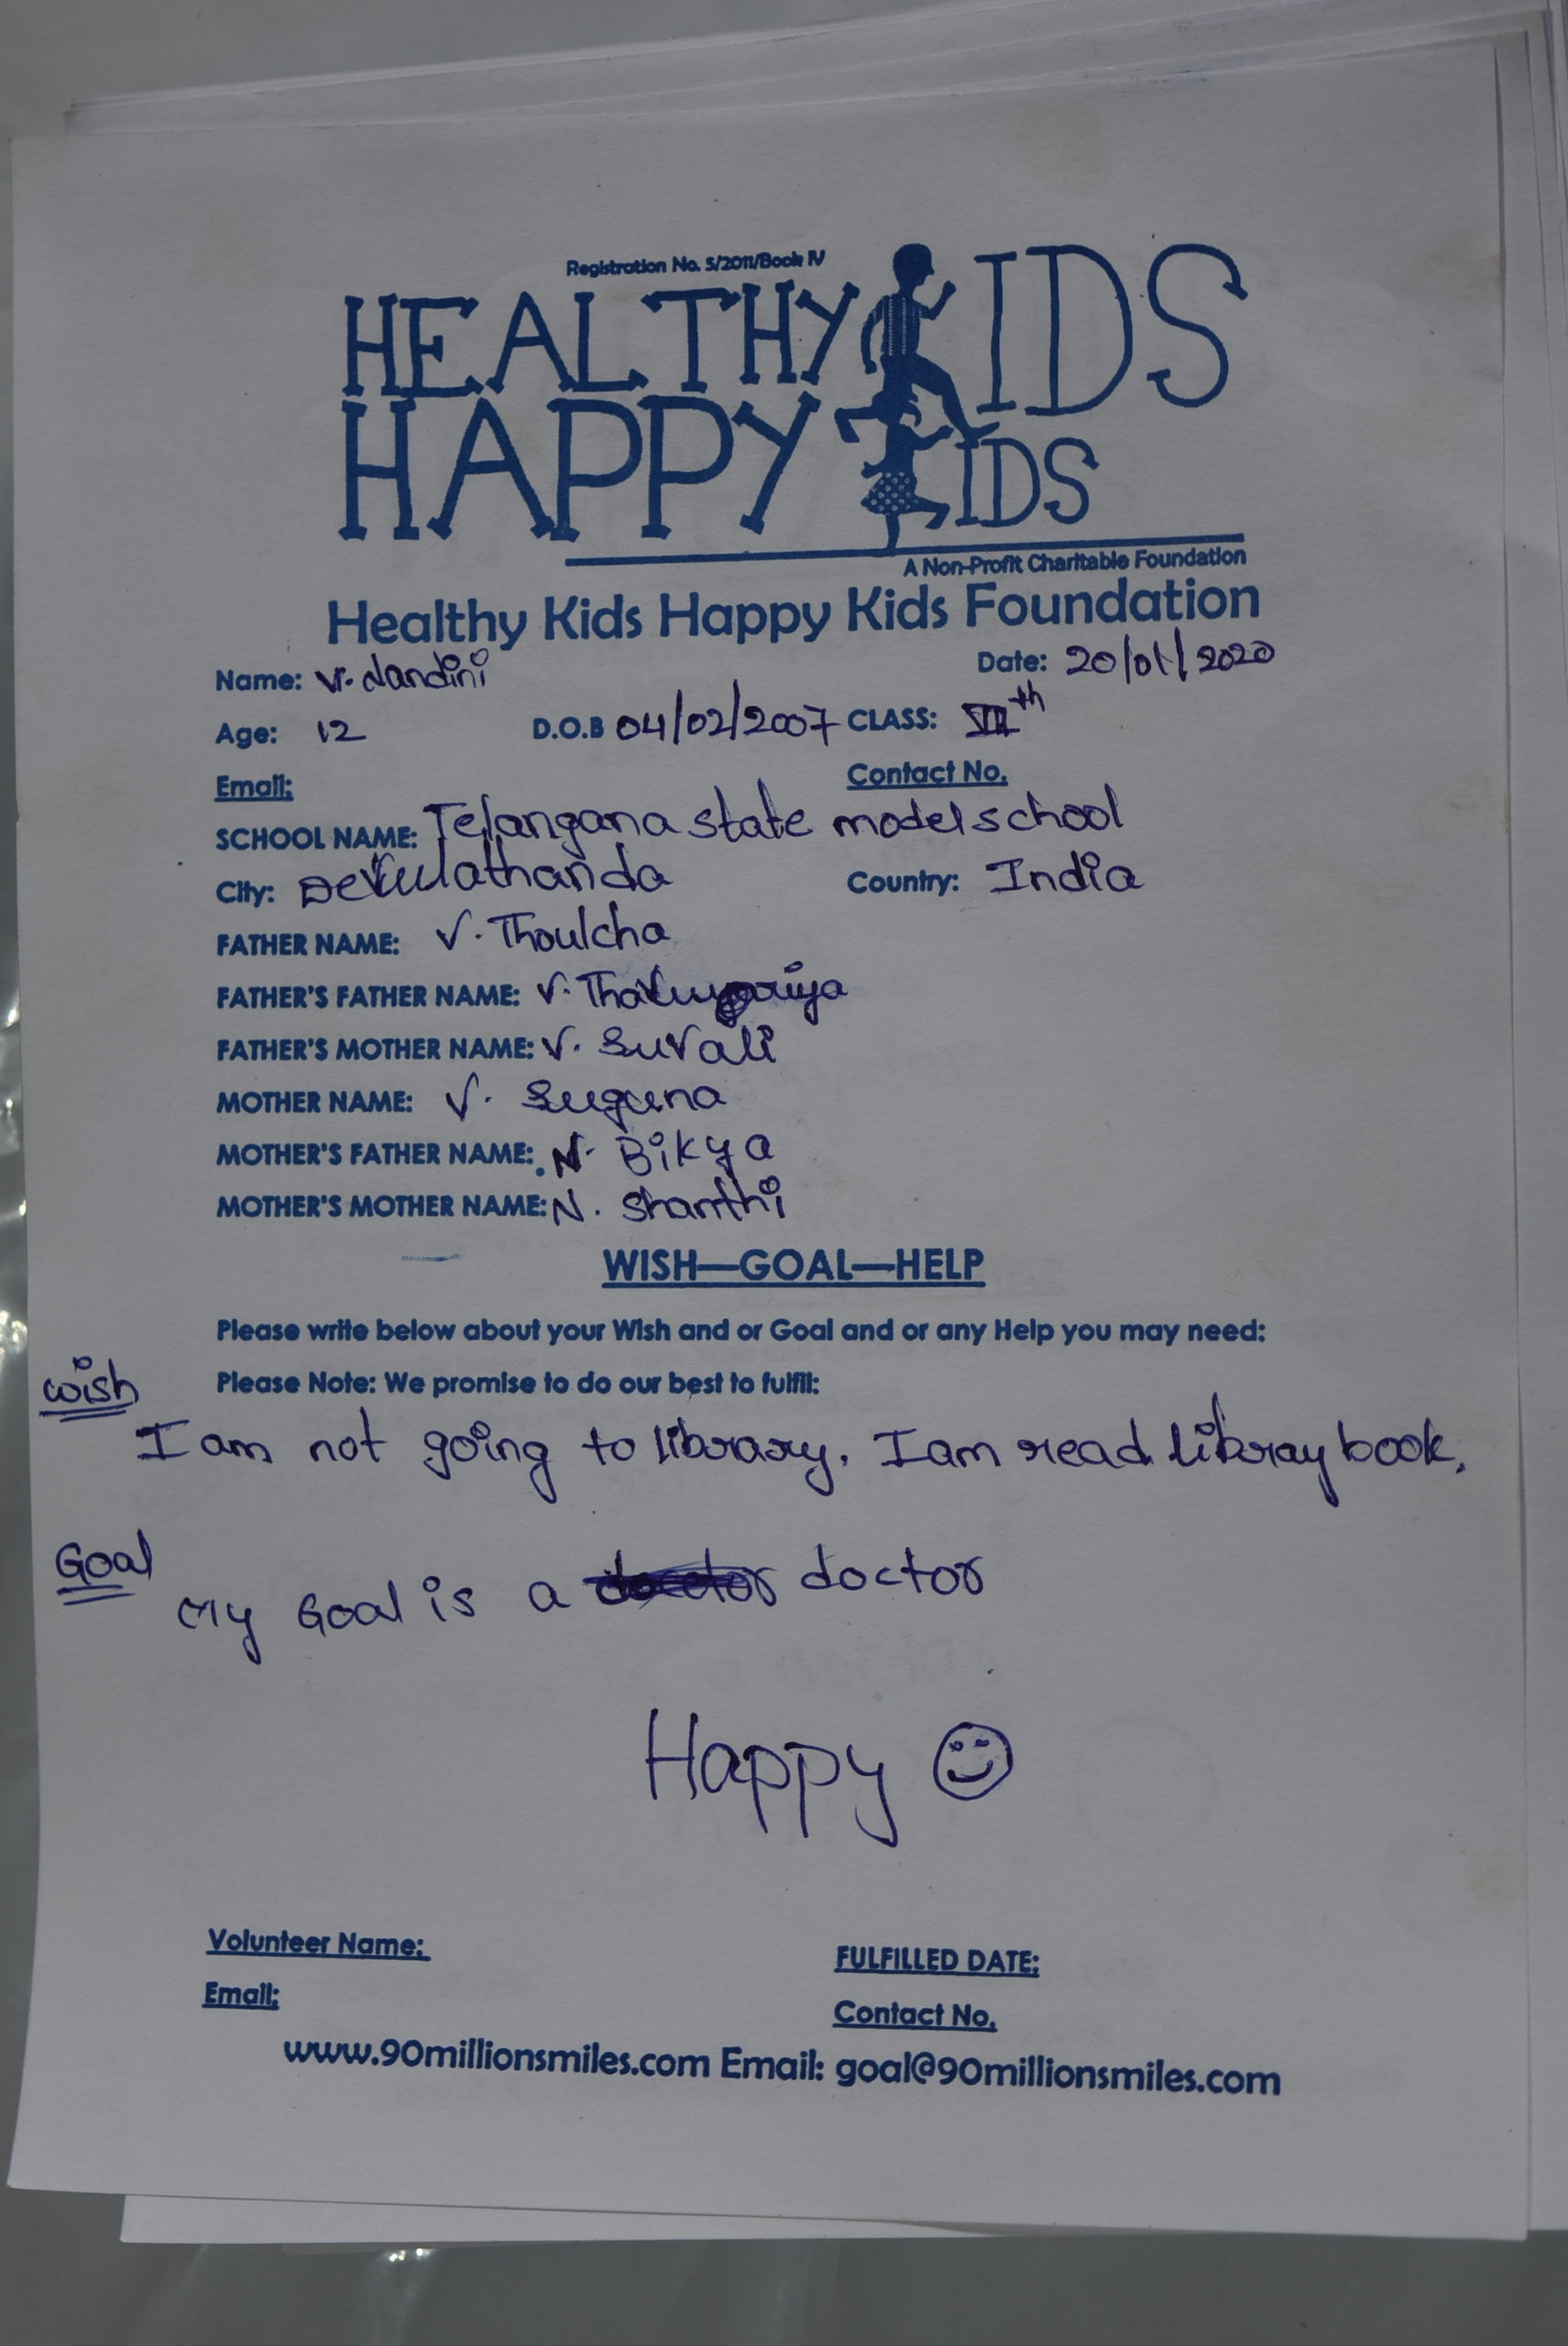 Registration No. 5/2011/Book IV
HEALTHY KIDS
HAPPY KIDS
A Non-Profit Charitable Foundation
Healthy Kids Happy Kids Foundation
Name: V. Nandini Date: 20/01/2020
Age: 12 D.O.B 04/02/2007 CLASS: VII th
Email: Contact No.
SCHOOL NAME: Telangana state model school
City: Country: India
FATHER NAME: V. Thoulcha
FATHER'S FATHER NAME: V.
FATHER'S MOTHER NAME: V. Suvali
MOTHER NAME: V. Suguna
MOTHER'S FATHER NAME: N. Bikya
MOTHER'S MOTHER NAME: N. Shanthi
WISH—GOAL—HELP
Please write below about your Wish and or Goal and or any Help you may need:
wish Please Note: We promise to do our best to fulfil:
I am not going to library. I am read libray book.
Goal
My Goal is a doctor
Happy
Volunteer Name: FULFILLED DATE:
Email: Contact No.
www.90millionsmiles.com Email: goal@90millionsmiles.com